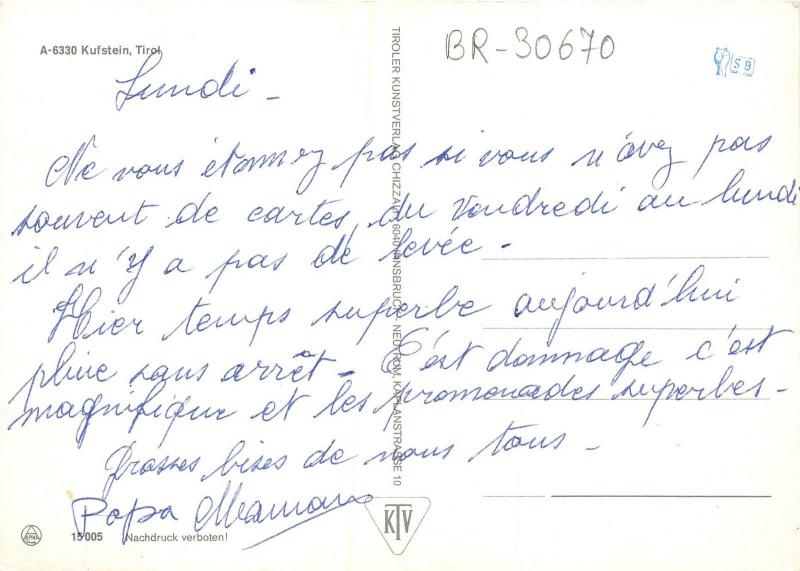 A-6330 Kufstein, Tirol
BR-30670
SB
Lundi -
Ne vous étonnez pas si vous n'avez pas
souvent de cartes, du vendredi au lundi
il n'y a pas de levée -
Hier temps superbe aujourd'hui
pluie sans arrêt - C'est dommage c'est
magnifique et les promenades superbes -
Grosses bises de nous tous -
Papa Maman
TIROLER KUNSTVERLAG CHIZZALI, 6040 INNSBRUCK, NEU-RUM, KAPLANSTRASSE 10
KTV
15005 Nachdruck verboten!